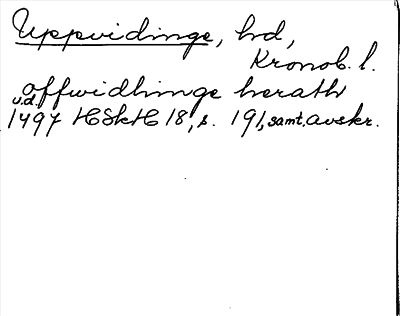 Uppvidinge, hrd,
Kronob. l.
offwidhinge herath
u.d.
1497 HSkH 18, s. 191, samt. avskr.